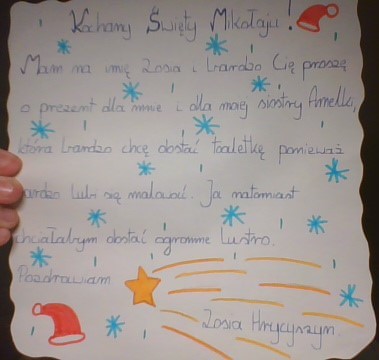 Kochany Święty Mikołaju!
Mam na imię Zosia i bardzo Cię proszę
o prezent dla mnie i dla mojej siostry Amelki,
która bardzo chcę dostać toaletkę ponieważ
bardzo lubi się malować. Ja natomiast
chciałabym dostać ogromne lustro.
Pozdrawiam
Zosia Hrycyszyn.